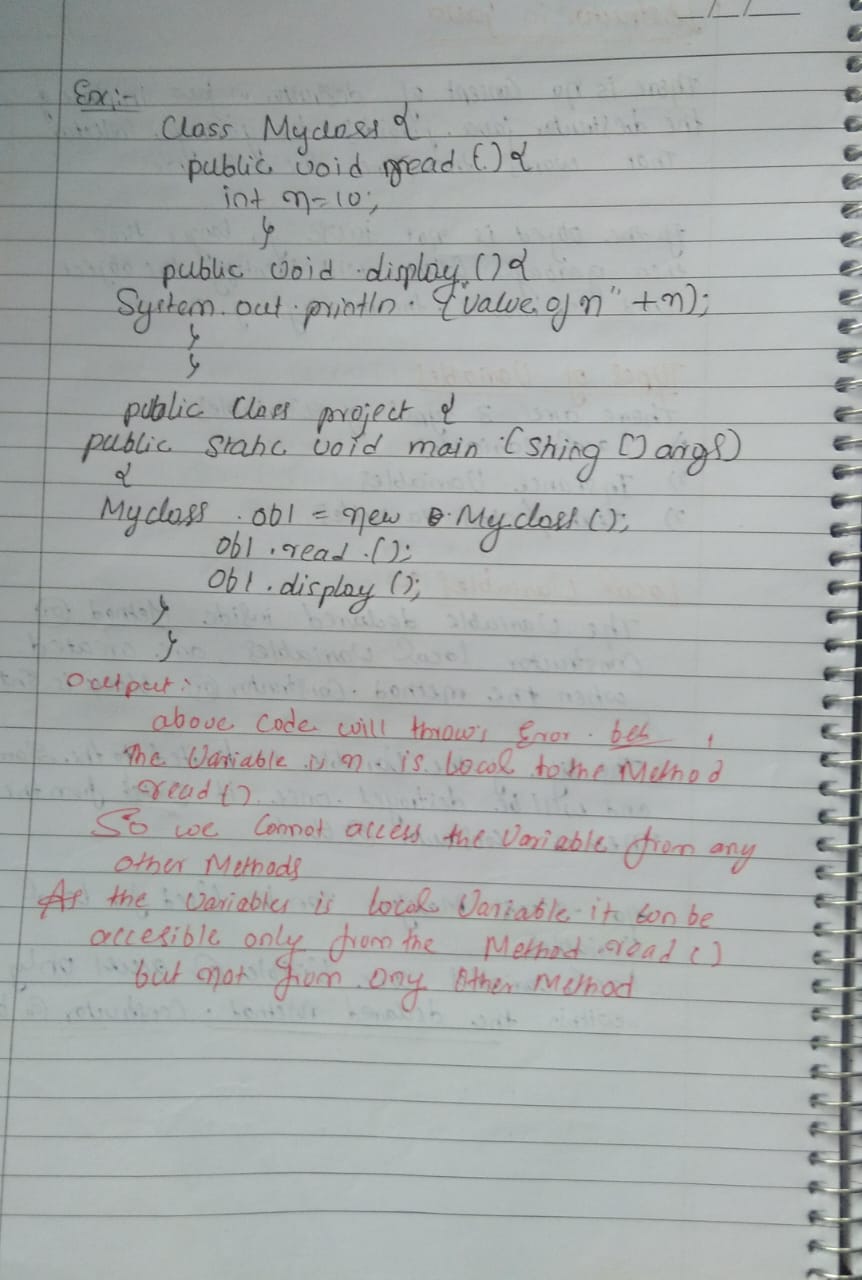 Ex:-
Class Myclass {
public void read () {
int n=10;
}
public void display () {
System.out.println. ("value of n" +n);
}
}
public Class project {
public static void main (String [] args)
{
Myclass obl = new Myclass ();
obl.read.();
obl.display ();
}
}
Output:
above code will throws Error.
the Variable is n is local to the Method
read ()
So we Cannot access the Variable from any
other Methods
As the Variables is local Variable it can be
accesible only from the Method read ()
but not from any other Method